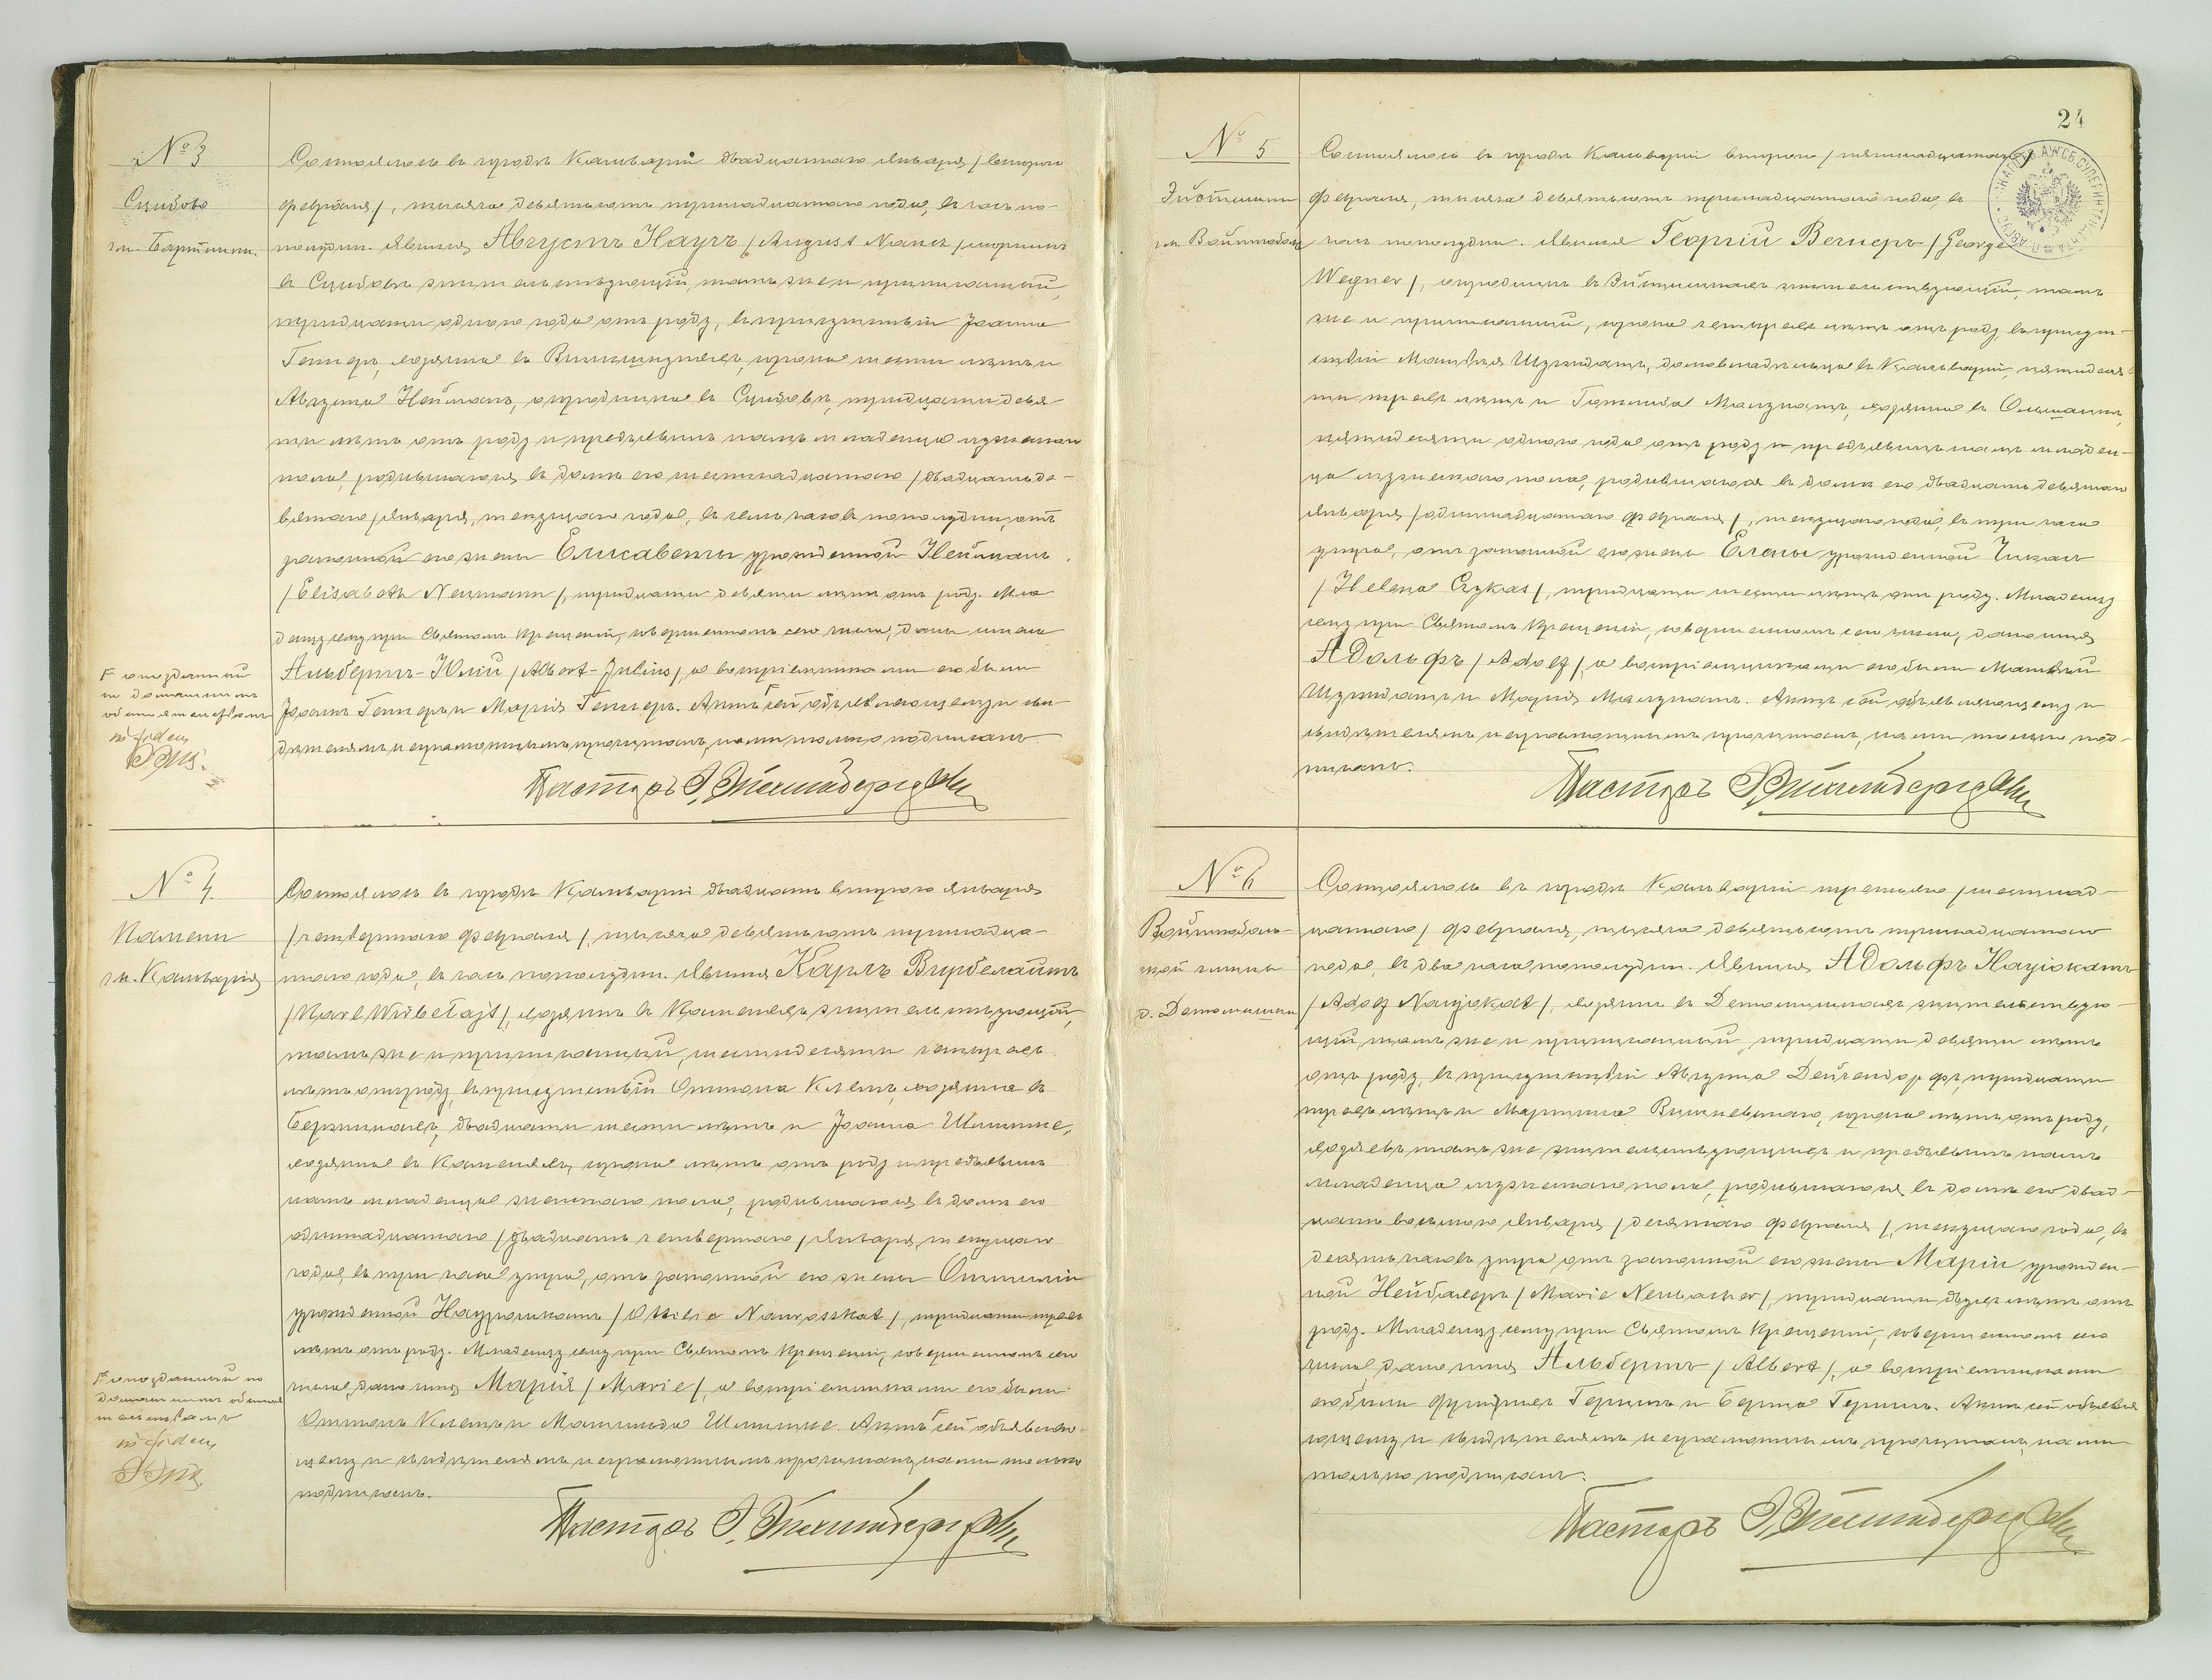 № 3
Сцибово
гм. Бартники.
Состоялось въ городѣ Кальваріи двадцатаго Января /второго
февраля/, тысяча девятьсотъ тринадцатаго года, въ часъ по-
полудни. Явился Августъ Науръ / August Naur /
въ Сцибовѣ жительствующій, тамъ же и приписанный,
тридцати одного года отъ роду, въ присутствіи Іоанна
Геннеръ, хозяина въ сорока шести лѣтъ и
Августа Нейманъ, огородника въ Сцибовѣ, тридцати девя-
ти лѣтъ отъ роду и предъявилъ намъ младенца мужескаго
пола, родившагося въ домѣ его шестнадцатаго /двадцать де-
вятаго/ Января, текущаго года, въ семь часовъ пополудни, отъ
законной его жены Елисаветы урожденной Нейманъ
/Elisabeth Neumann/, тридцати девяти лѣтъ отъ роду. Мла-
денцу сему при Святомъ Крещеніи, совершенномъ сего числа, даны имена
Альбертъ-Юлій /Albert-Julius/, а воспріемниками его были
Іоаннъ Геннеръ и Марія Геннеръ. Актъ сей объявляющему и сви-
дѣтелямъ неграмотнымъ прочитанъ, нами только подписанъ
Пасторъ
Г опозданный
по домашнимъ
обстоятельствамъ
№ 4.
Камени
гм. Кальварія
Состоялось въ городѣ Кальваріи двадцать второго Января
/четвертаго февраля/, тысяча девятьсотъ тринадца-
таго года, въ часъ пополудни. Явился Карлъ Вирбелайтъ
/Karl Wirbelajt/, хозяинъ въ Каменяхъ жительствующій,
тамъ же и приписанный, шестидесяти четырехъ
лѣтъ отъ роду, въ присутствіи Оттона Клемъ, хозяина въ
двадцати шести лѣтъ и Іоанна
хозяина въ Каменяхъ, сорока лѣтъ отъ роду и предъявилъ
намъ младенца женскаго пола, родившагося въ домѣ его
одиннадцатаго /двадцать четвертаго/ Января, текущаго
года, въ три часа утра, отъ законной его жены Оттиліи
урожденной Наурошкатъ /Ottilie Nauroszkat/, тридцати трехъ
лѣтъ отъ роду. Младенцу сему при Святомъ Крещеніи, совершенномъ сего
числа, дано имя Марія /Marie/, а воспріемниками его были
Оттонъ Клемъ и Матильда Актъ сей объявляю-
щему и свидѣтелямъ неграмотнымъ прочитанъ, нами только
подписанъ.
Пасторъ
Г опозданный по
домашнимъ обстоя-
тельствамъ
24
№ 5
гм. Войткобол
Состоялось въ городѣ Кальваріи второго /пятнадцатаго/
февраля, тысяча девятьсотъ тринадцатаго года, въ
часъ пополудни. Явился Георгій Вегнеръ /George
Wegner/, огородникъ въ жительствующій, тамъ
же и приписанный, сорока четырехъ лѣтъ отъ роду, въ присут-
ствіи Матвѣя домовладѣльца въ Кальваріи, пятидеся-
ти трехъ лѣтъ и Готлиба хозяина въ
пятидесяти одного года отъ роду и предъявилъ намъ младен-
ца мужескаго пола, родившагося въ домѣ его двадцать девятаго
Января /одиннадцатаго февраля/, текущаго года, въ три часа
утра, отъ законной его жены Елены урожденной Чикасъ
/Helena Czykas/, тридцати шести лѣтъ отъ роду. Младенцу
сему при Святомъ Крещеніи, совершенномъ сего числа, дано имя
Адольфъ /Adolf/, а воспріемниками его были Матвѣй
и Марія Актъ сей объявляющему и
свидѣтелямъ неграмотнымъ прочитанъ, нами только под-
писанъ.
Пасторъ
№ 6
Войткоболь-
ской гмины
д.
Состоялось въ городѣ Кальваріи третьяго /шестнад-
цатаго/ февраля, тысяча девятьсотъ тринадцатаго
года, въ два часа пополудни. Явился Адольфъ Науіокатъ
/Adolf Naujokat/, хозяинъ въ жительствую-
щій тамъ же и приписанный, тридцати девяти лѣтъ
отъ роду, въ присутствіи Августа Дейчендорфъ, тридцати
трехъ лѣтъ и Мартина Вишневскаго, сорока лѣтъ отъ роду,
хозяевъ тамъ же жительствующихъ и предъявилъ намъ
младенца мужескаго пола, родившагося въ домѣ его двад-
цать восьмого Января /десятаго февраля/, текущаго года, въ
десять часовъ утра отъ законной его жены Маріи урожден-
ной Нейбахеръ /Marie Neubacher/, тридцати двухъ лѣтъ отъ
роду. Младенцу сему при Святомъ Крещеніи, совершенномъ сего
числа, дано имя Альбертъ /Albert/, а воспріемниками
его были Фридрихъ Герингъ и Берта Герингъ. Актъ сей объявля-
ющему и свидѣтелямъ неграмотнымъ прочитанъ, нами
только подписанъ.
Пасторъ